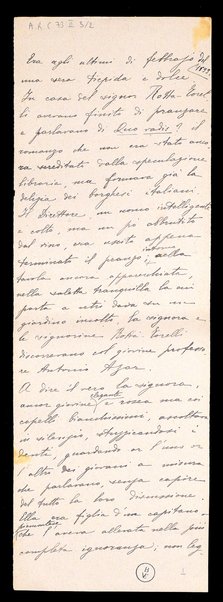 A.R.C 73 II 3/2
Era agli ultimi di febbrajo del 1899
una sera tiepida e dolce
In casa del signor Rotta-Torelli
si aveano finito di pranzare
e parlavano di Quo vadis? il
romanzo che non era stato anco
ra screditato dalla speculazione
libraria, ma formava già la
delizia dei borghesi italiani
Il Direttore, un uomo intelligente
e colto, ma un pò abbrutito
dal vino, era uscito appena
terminato il pranzo; intorno alla
tavola ancora apparecchiata,
nella saletta tranquilla la cui
porta a vetri dava su un
giardino incolto, la signora e
le signorine Rotta-Torelli
discorrevano col giovine professo
re Antonio Azar.
A dire il vero la signora,
ancor giovine, e rosea ma coi
capelli bianchissimi, ascoltava
in silenzio, stuzzicandosi i
denti, guardando or l'uno or
l'altro dei giovani a misura
che parlavano, senza capire
del tutto la loro discussione.
Ella era figlia d'un capitano
piemontese che l'aveva allevata nella più
completa ignoranza; non leg